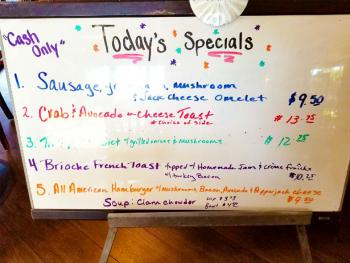 "Cash Only"
Today's Specials
1. Sausage, Mushroom
& Jack Cheese Omelet $9.50
2. Crab & Avocado w Cheese Toast
* Choice of Side * 13.75
3. grilled onions & mushrooms 12.25
4 Brioche French Toast topped w Homemade Jam & crème fraîche
w turkey Bacon $10.25
5. All American Hamburger w Mushrooms, Bacon, Avocado & Pepperjack cheese
Soup: Clam chowder cup $3.75 $9.50
Bowl